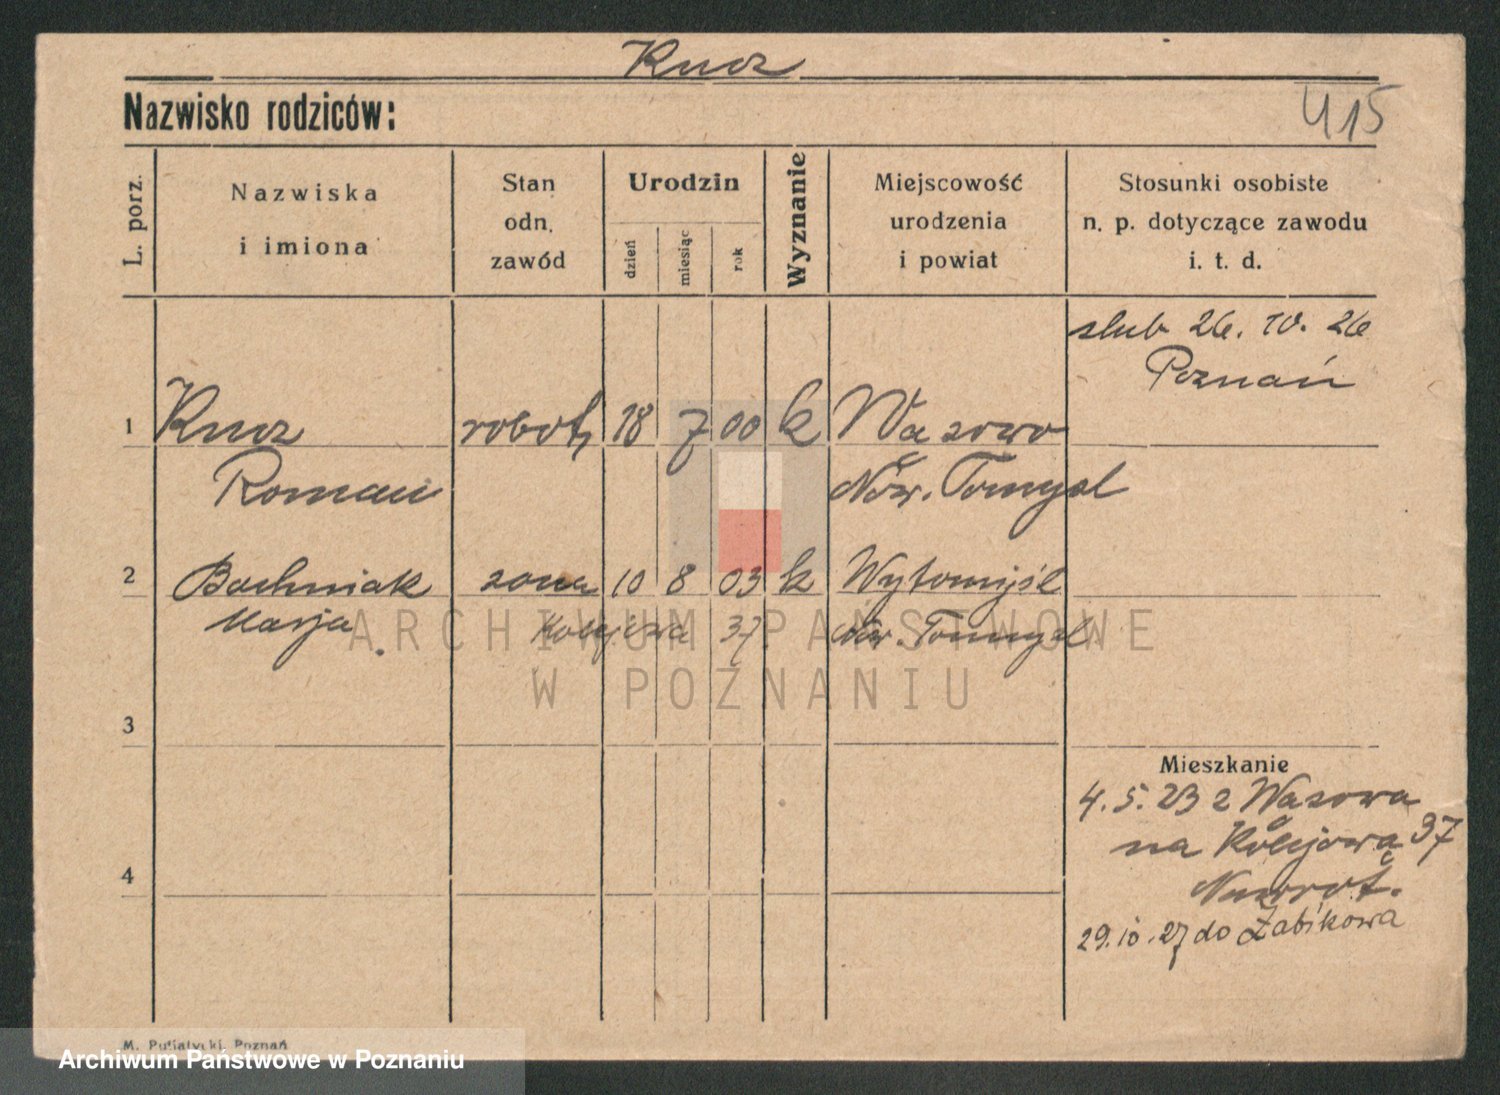 Kucz
Nazwisko rodziców:
415
L. porz.
Nazwiska
i imiona
Stan
odn.
zawód
Urodzin
dzień
miesiąc
rok
Wyznanie
Miejscowość
urodzenia
i powiat
Stosunki osobiste
n. p. dotyczące zawodu
i. t. d.
slub 26. 10. 26
Poznań
1 Kucz robotn 18 7 00 k Wąsowo
Roman Now. Tomysl
2 Bachniak zona 10 8 03 k Wytomyśl
Marja Kolejowa 37 Now. Tomysl
ARCHIWUM PAŃSTWOWE
W POZNANIU
3
Mieszkanie
4. 5. 23 z Wąsowa
na Kolejową 37
4
Nawrot.
29. 10. 27 do Żabikowa
M. Putiatycki, Poznań
Archiwum Państwowe w Poznaniu